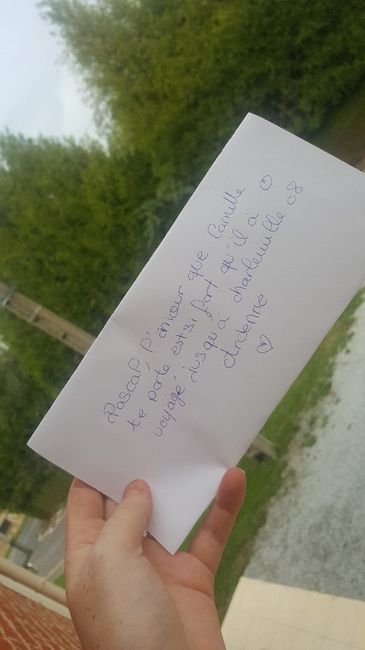 Pascal l'amour que Camille
te porte est si fort qu'il à
voyagé jusqu'à charleville 08
Ardenne